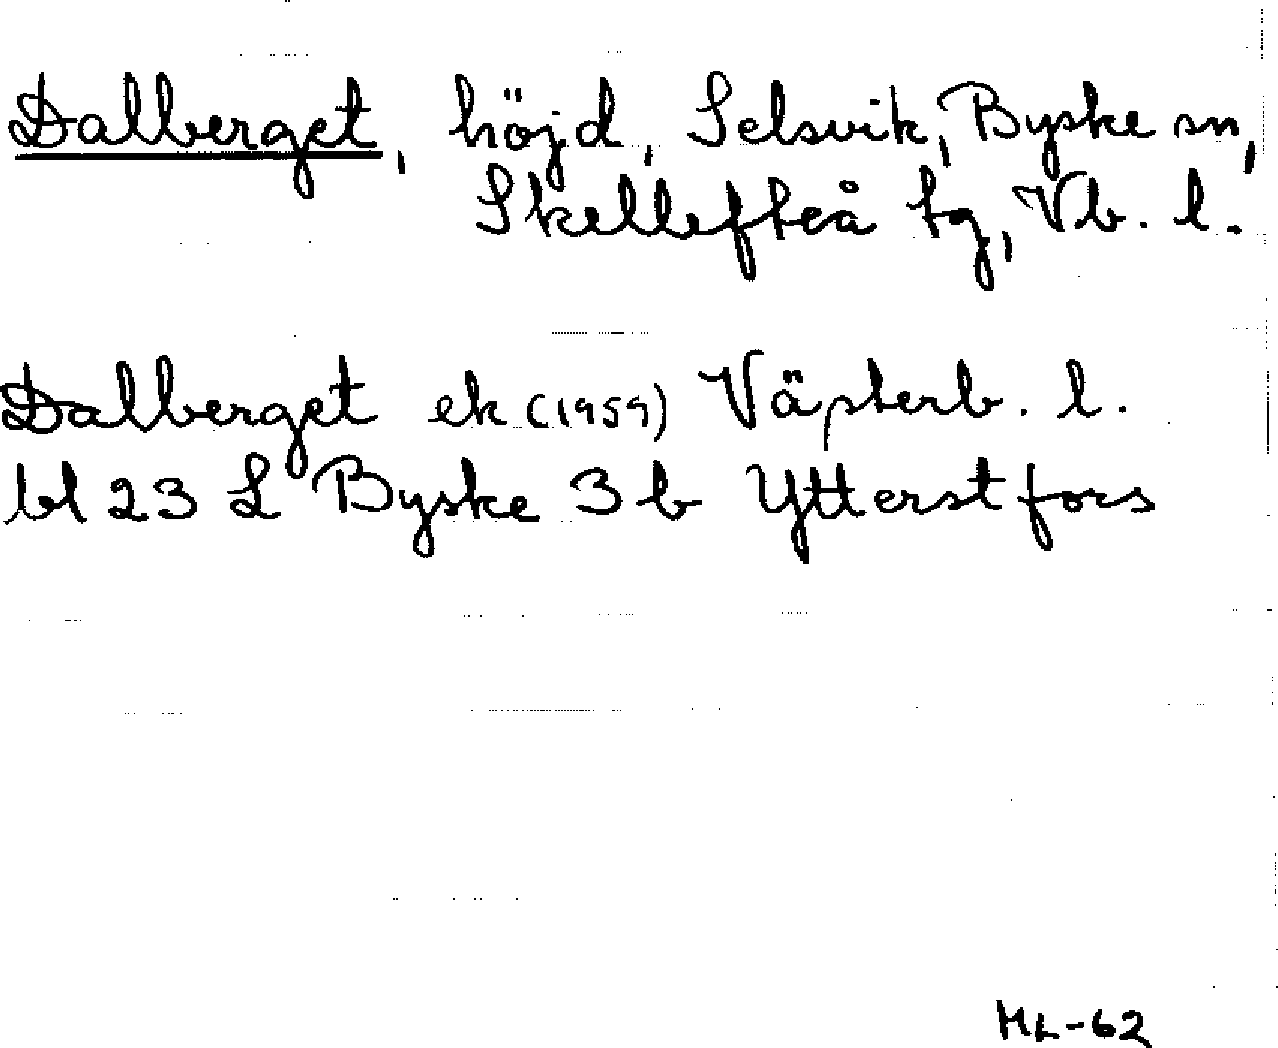 Dalberget, höjd, Selsvik, Byske sn,
Skellefteå tg, Vb. l.
Dalberget ek (1959) Västerb. l.
bl 23 L Byske 3 b Ytterstfors
HL-62